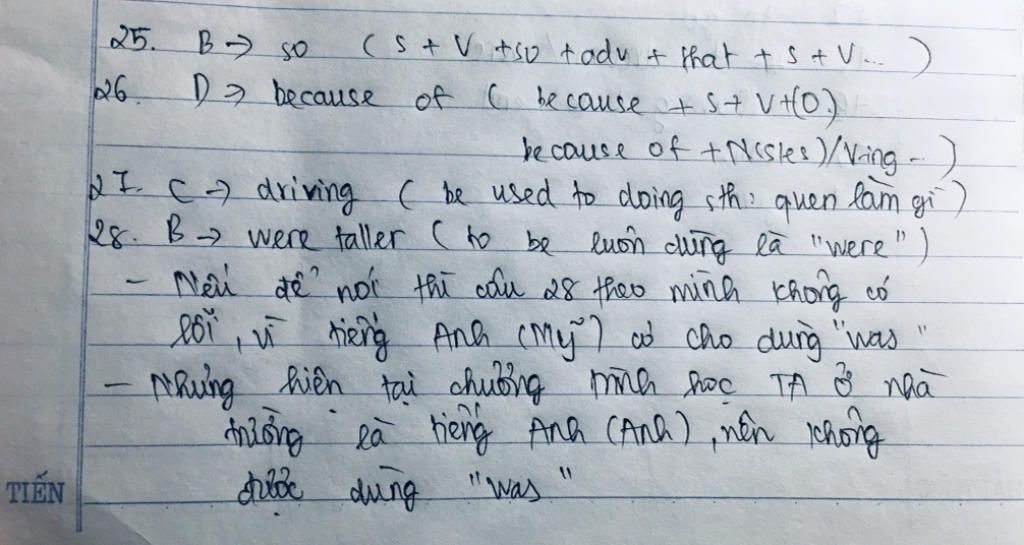 25. B → so ( S + V + so + adv + that + S + V... )
26. D → because of ( because + S + V + (O)
because of + N(s/es)/V-ing ... )
27. C → driving ( be used to doing sth : quen làm gì )
28. B → were taller ( to be luôn dùng là "were" )
- Nếu để nói thì câu 28 theo mình không có
lỗi, vì tiếng Anh (Mỹ) có cho dùng "was"
- Nhưng hiện tại chương trình học TA ở nhà
trường là tiếng Anh (Anh), nên không
được dùng "was"
TIẾN